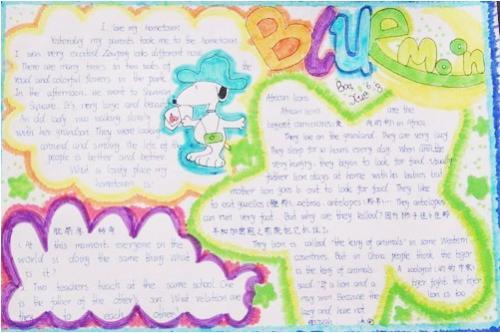 BLUE
Moon
I love my hometown
Yesterday my parents took me to the hometown.
I was very excited. Zouping looks different now.
There are many trees in two sides of the
road and colorful flowers in the park.
In the afternoon, we went to
Square. It's very large and
An old lady was walking slowly
with her grandson. They were looking
around and smiling. the life of the
people is better and better.
What a lovely place my
hometown is!
African Lions
African lions are the
largest carnivores in Africa.
They live on the grassland. They are very lazy
They sleep for 20 hours every day. When
very hungry, they begin to look for food. Usually
father lion stays at home with his babies, but
mother lion goes out to look for food. They like
to eat gazelles zebras antelopes They antelopes
can run very fast. But why are they killed?
They lion is called "the king of animals" in some Western
countries. But in China people think the tiger
is the king of animals. A zoologist
said: "If a lion and a tiger fight, the tiger
will win. Because the lion is too
lazy and have not
1 At this moment, everyone in the
world is doing the same thing. What
is it?
2. Two teachers teach at the same school. One
is the father of the other's son. What relation are
they to each other